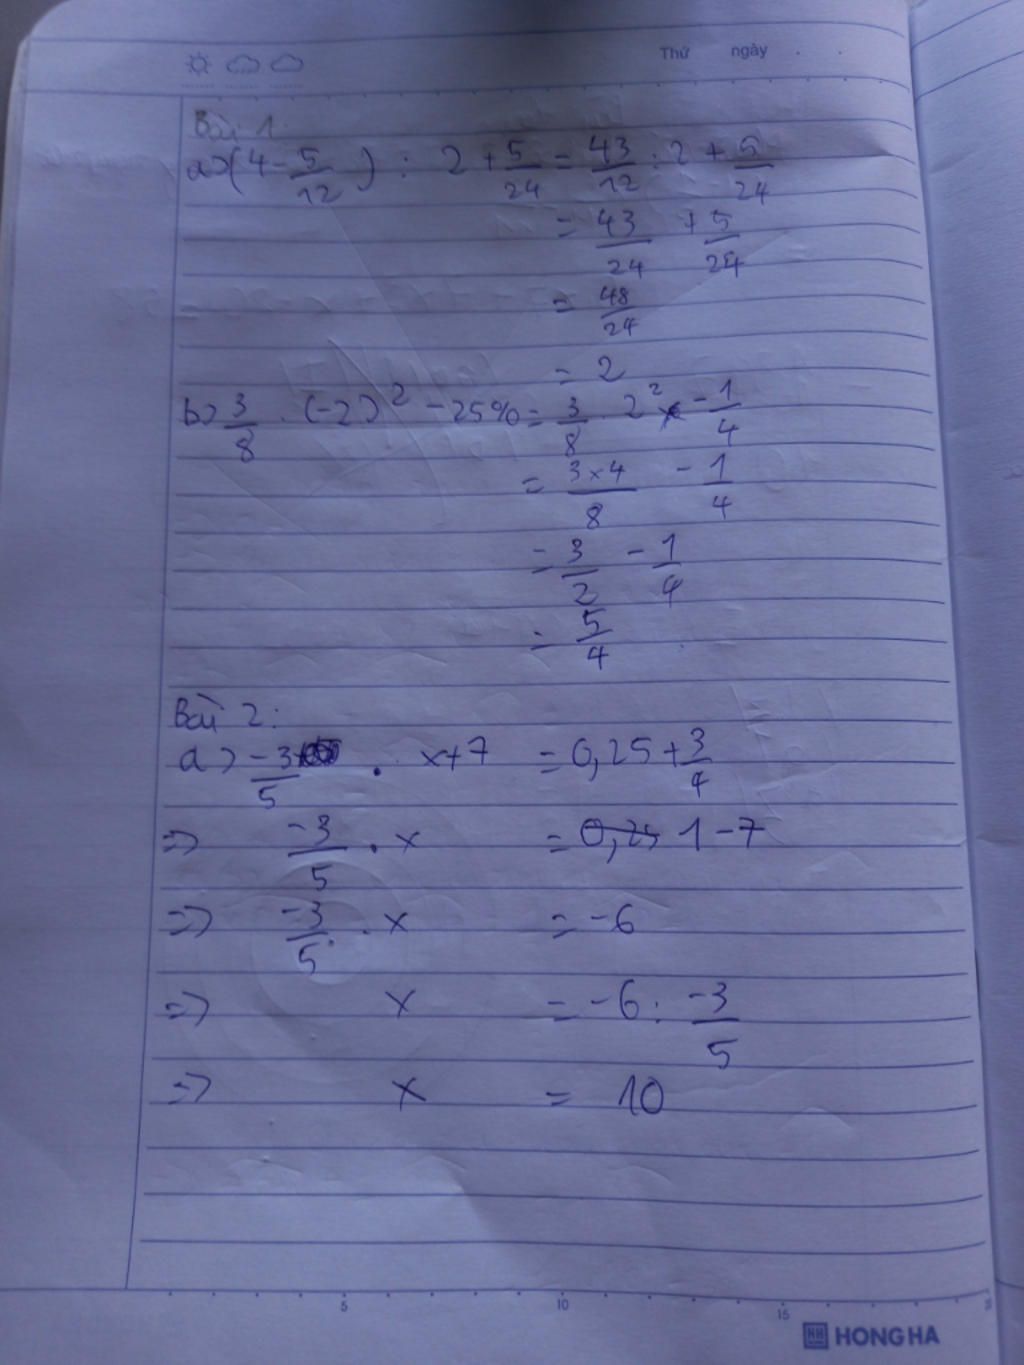 Thứ ngày . .
Bài 1:
a>(4 - 5/12) : 2 + 5/24 = 43/12 : 2 + 5/24
= 43/24 + 5/24
= 48/24
= 2
b> 3/8 . (-2)² - 25% = 3/8 . 2² - 1/4
= 3×4/8 - 1/4
= 3/2 - 1/4
= 5/4
Bài 2:
a> -3/5 . x+7 = 0,25 + 3/4
=> -3/5 . x = 0,25 1 - 7
=> -3/5 . x = -6
=> x = -6 : -3/5
=> x = 10
5 10 15 20
HH HONG HA